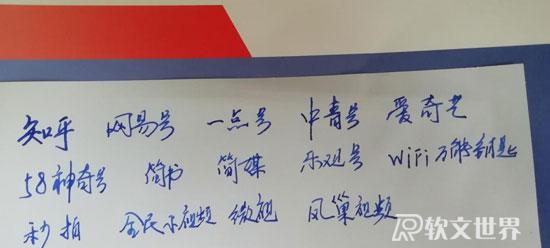 知乎 网易号 一点号 中青号 爱奇艺
58神奇号 简书 简媒 乐观号 WiFi万能钥匙
秒拍 全民小视频 微视 凤巢视频
软文世界